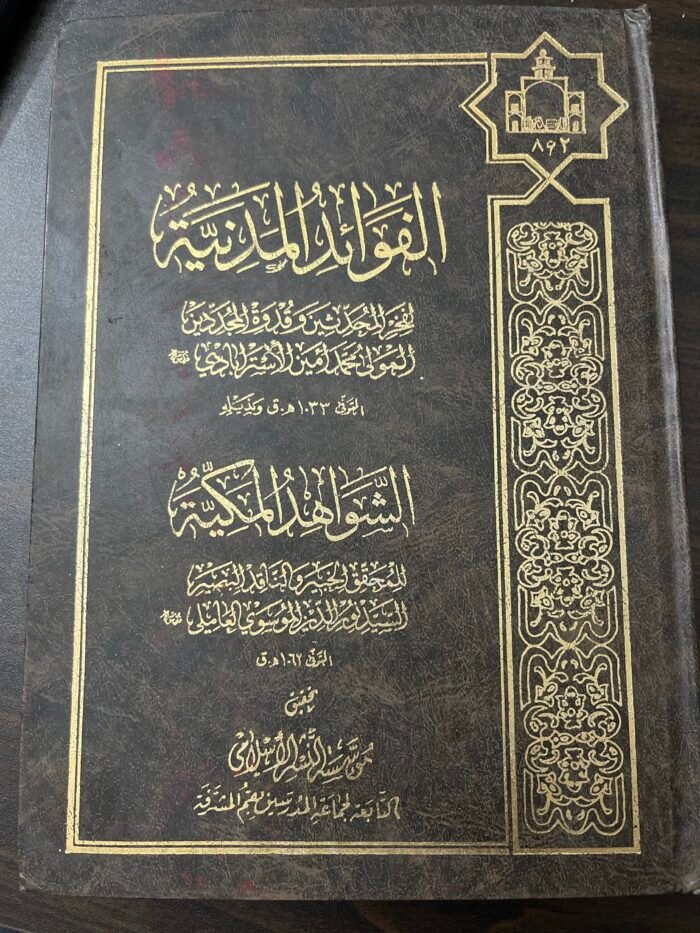 ٨٩٢
الفَوَائِدُ المَدَنِيَّةُ
لفخر المحدثين وقدوة المجددين
المولى محمد أمين الأسترآبادي
المتوفى ١٠٣٣ ه‍.ق وبذيله
الشَّوَاهِدُ المَكِّيَّةُ
للمحقق الخبير والناقد البصير
السيد نور الدين الموسوي العاملي
المتوفى ١٠٦٢ ه‍.ق
تحقيق
مؤسسة النشر الإسلامي
التابعة لجماعة المدرسين بقم المشرفة